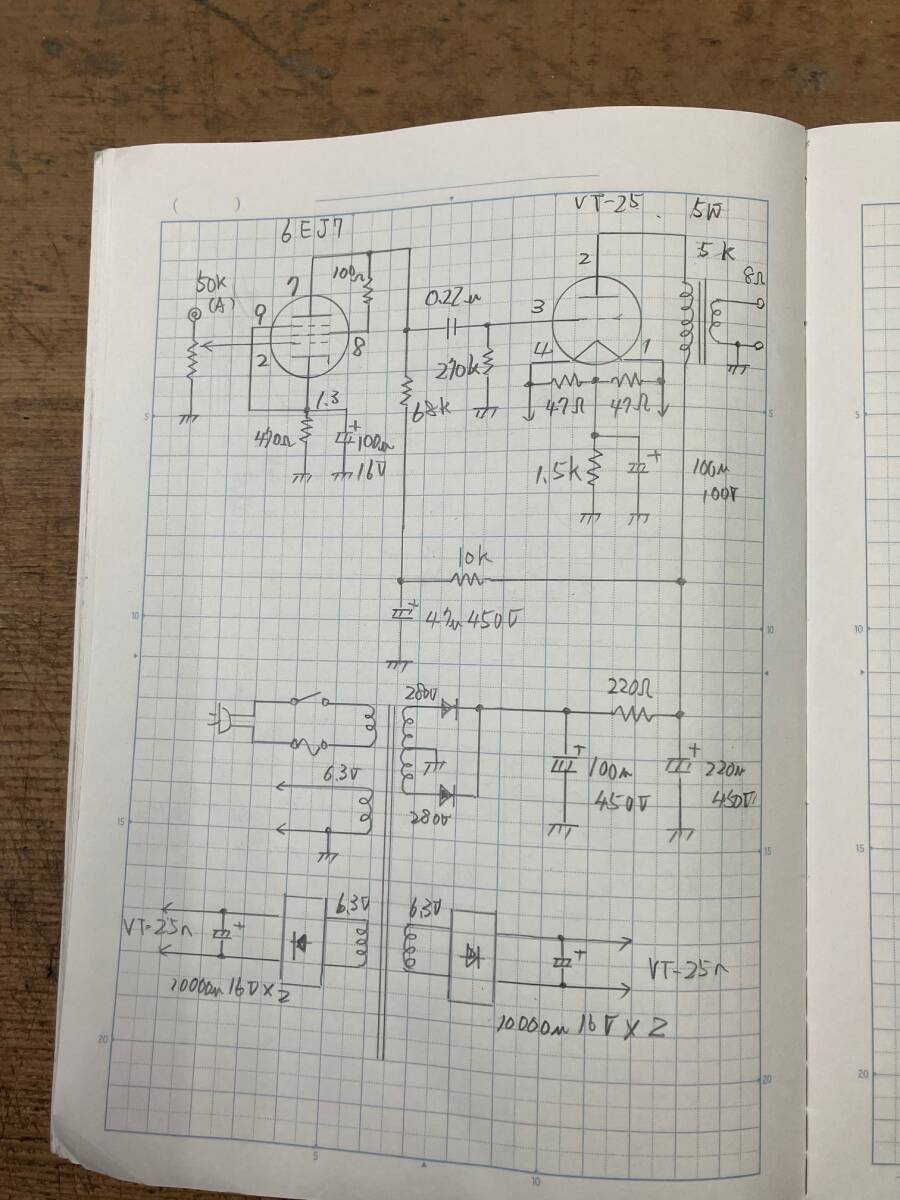 (        )
6EJ7
VT-25
5W
5k
8Ω
50k
(A)
100Ω
7
9
2
8
1.3
0.22u
270k
68k
470Ω
100u
16V
2
3
4
1
47Ω
47Ω
1.5k
100u
100V
10k
47u 450V
280V
280V
6.3V
220Ω
100u
450V
220u
450V
6.3V
6.3V
VT-25ヘ
10000u 16V×2
VT-25ヘ
10000u 16V×2
5
10
15
20
5
10
15
20
5
10
5
10
15
20